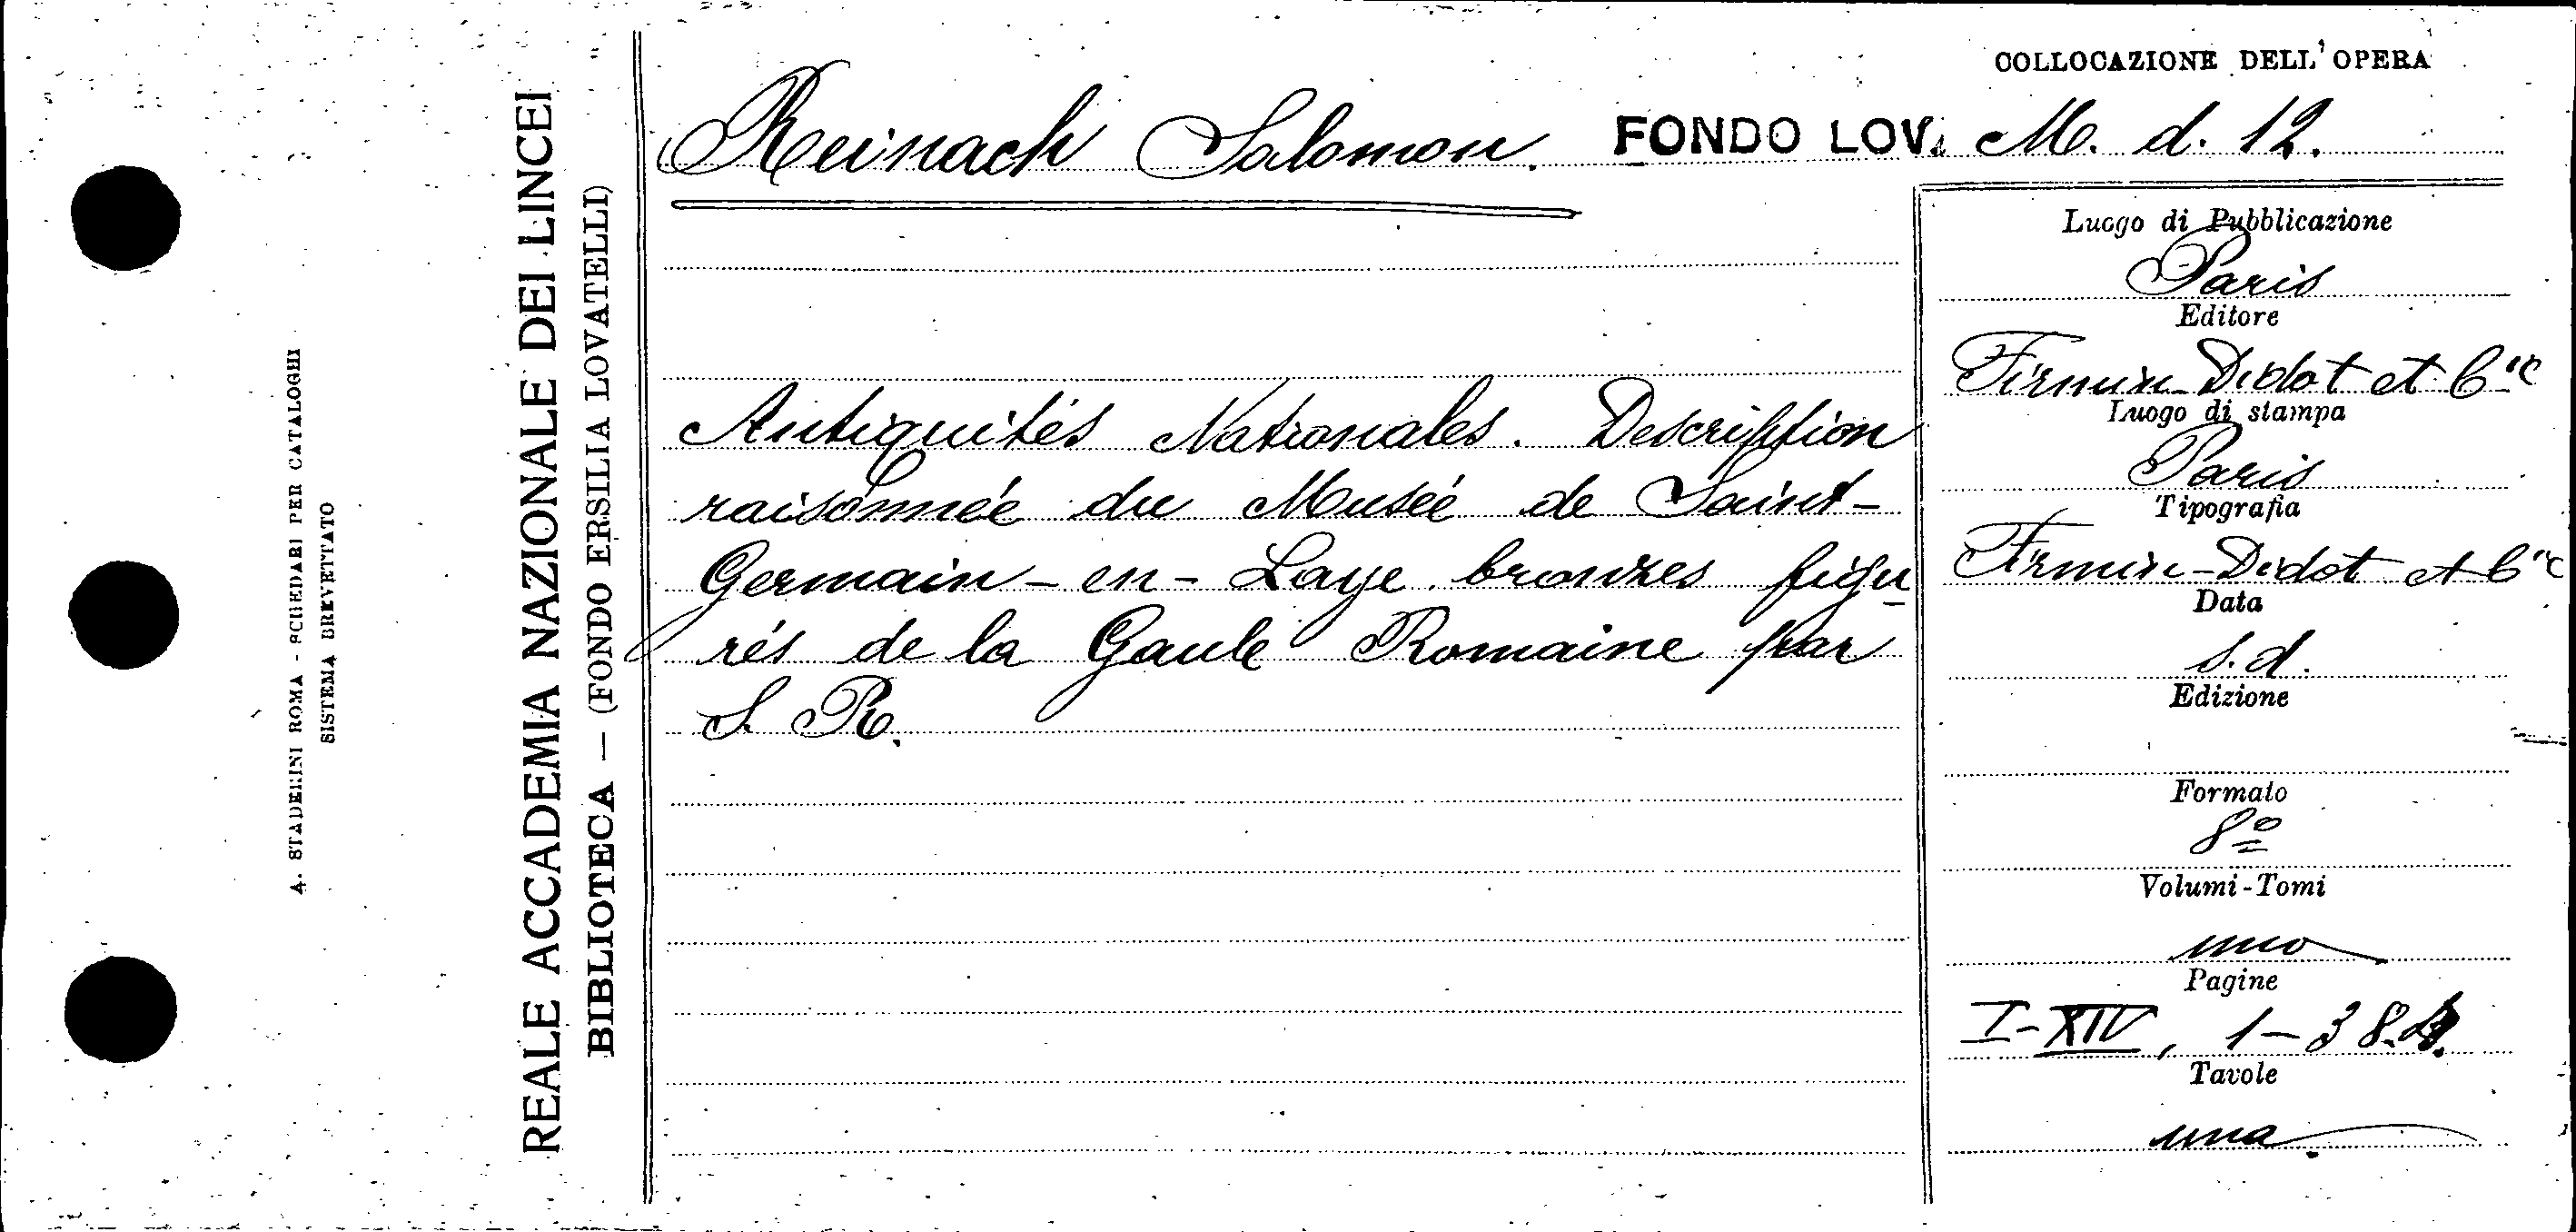 A. STADERINI ROMA - SCHEDARI PER CATALOGHI
SISTEMA BREVETTATO
REALE ACCADEMIA NAZIONALE DEI LINCEI
BIBLIOTECA — (FONDO ERSILIA LOVATELLI)
COLLOCAZIONE DELL'OPERA
Reinach Salomon. FONDO LOV. M. d. 12.
Antiquités Nationales. Description
raisonnée du Musée de Saint-
Germain-en-Laye bronzes figu
rés de la Gaule Romaine par
S. R.
Luogo di Pubblicazione
Paris
Editore
Firmin-Didot et Cie
Luogo di stampa
Paris
Tipografia
Firmin-Didot et Cie
Data
s.d.
Edizione
Formato
8º
Volumi-Tomi
uno
Pagine
I-XIV, 1-38
Tavole
una